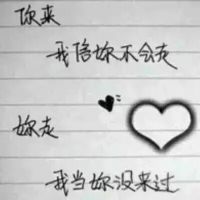 你来
我陪你不会走
妳走
我当妳没来过